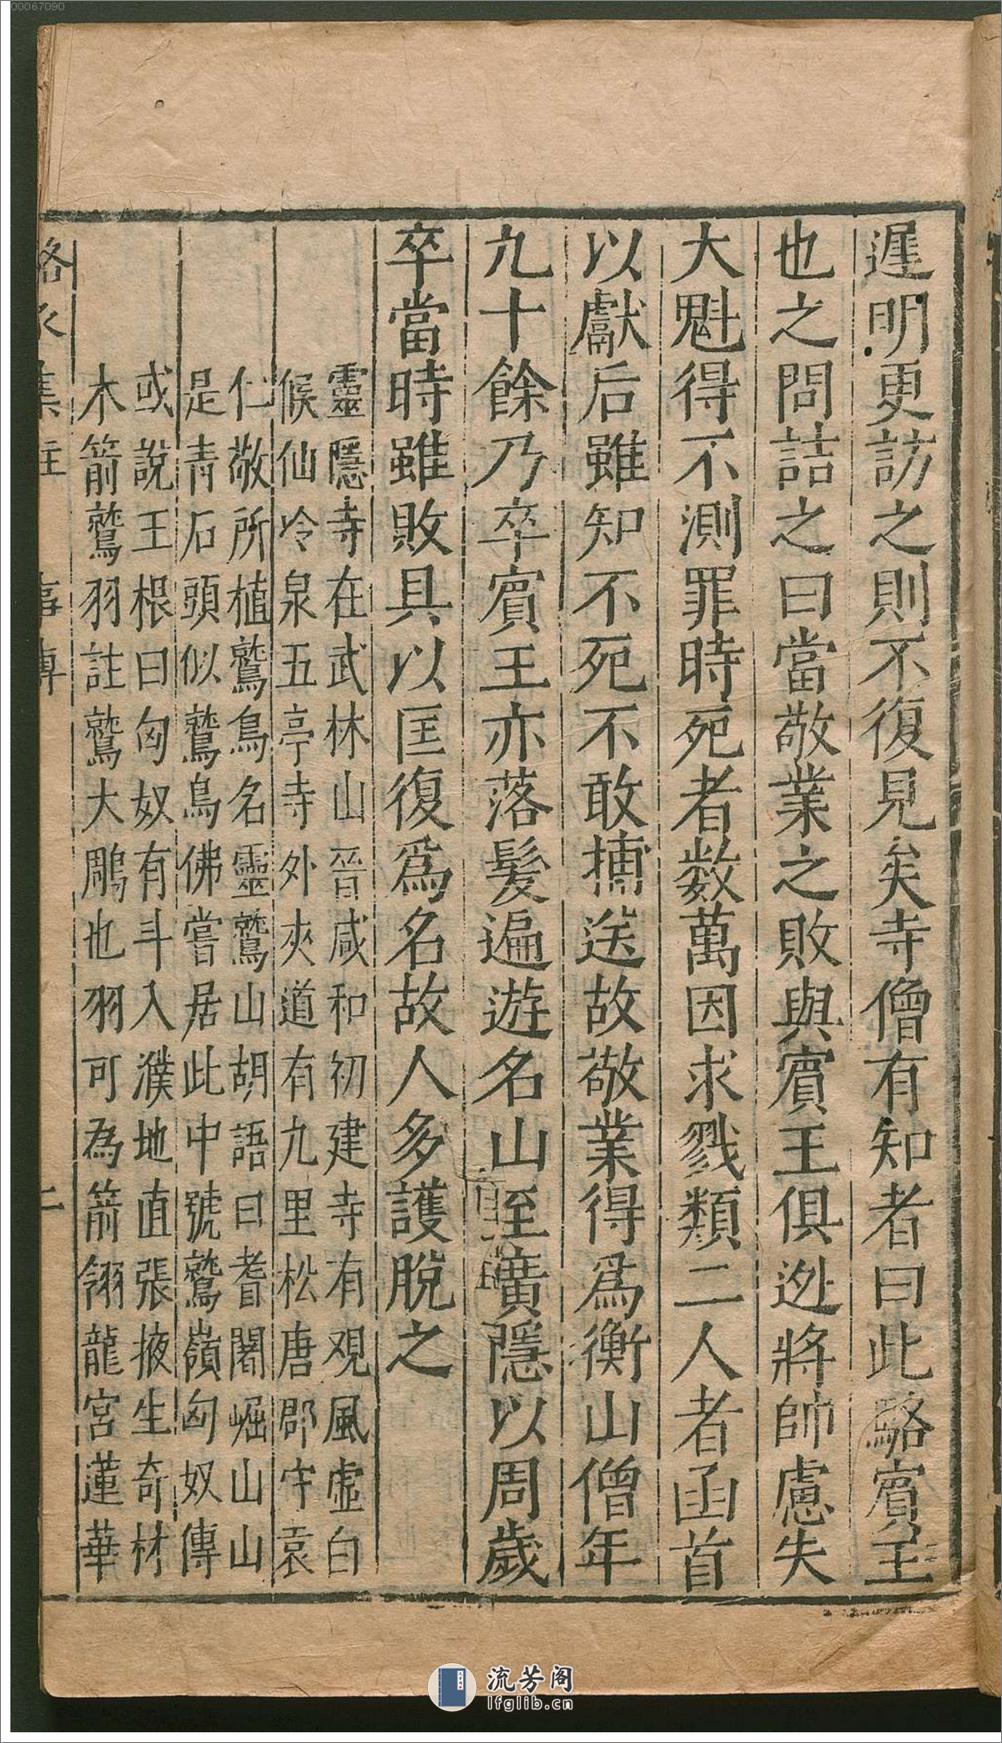 00067090
遲明更訪之則不復見矣寺僧有知者曰此駱賓王
也之問詰之曰當敬業之敗與賓王俱迯將帥慮失
大魁得不測罪時死者数萬因求戮類二人者函首
以獻后雖知不死不敢捕送故敬業得爲衡山僧年
九十餘乃卒賓王亦落髮遍遊名山至廣隱以周歲
卒當時雖敗具以匡復爲名故人多護脫之
靈隱寺在武林山晉咸和初建寺有观風虛白
候仙冷泉五亭寺外夾道有九里松唐郡守袁
仁敬所植鷲鳥名靈鷲山胡語曰耆闍崛山山
是青石頭似鷲鳥佛嘗居此中號鷲嶺匈奴傳
或說王根曰匈奴有斗入濮地直張掖生奇材
木箭鷲羽註鷲大鵰也羽可為箭翎龍宮蓮華
集註 二
流芳阁
lfglib.cn